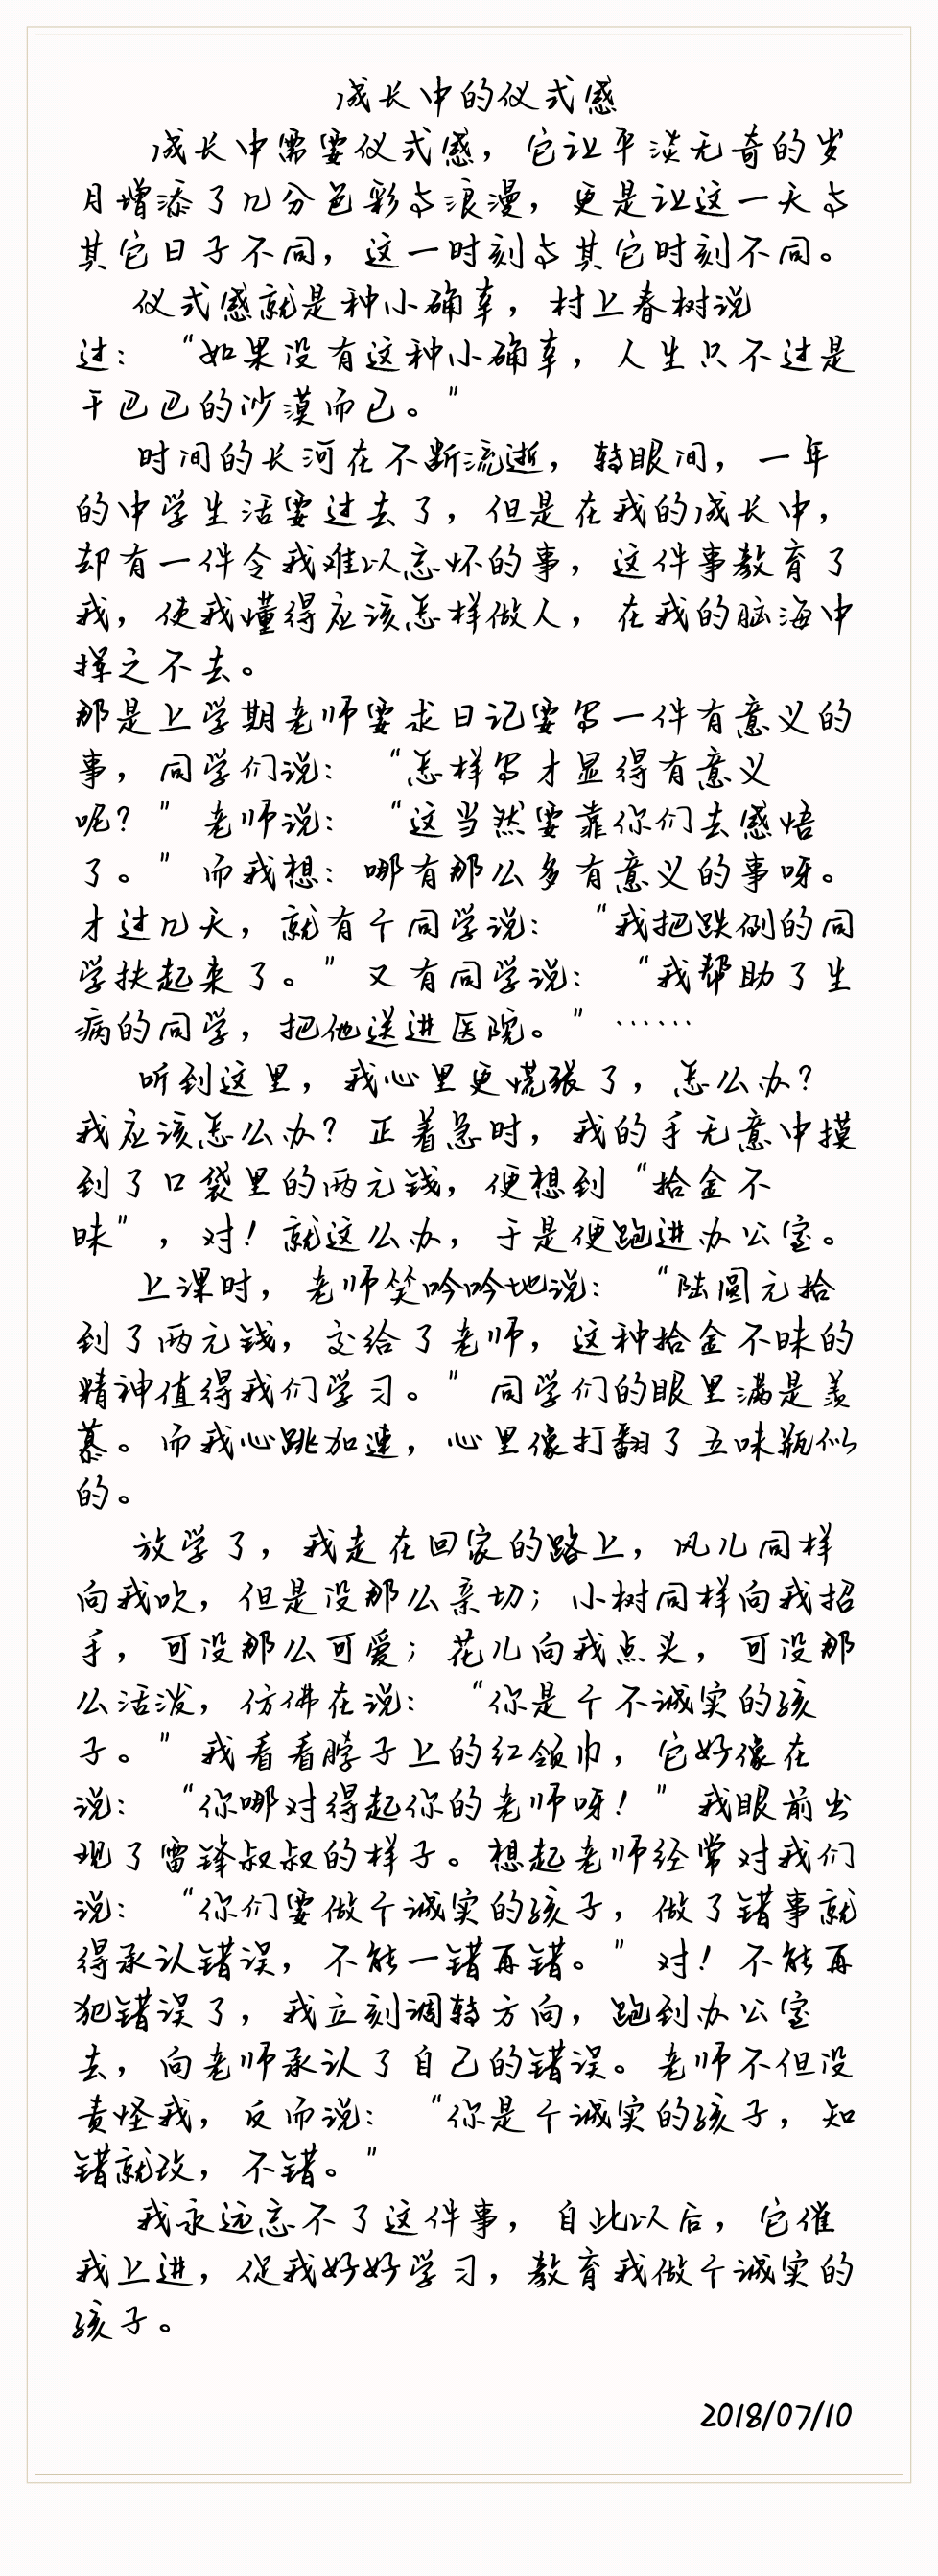 成长中的仪式感
成长中需要仪式感，它让平淡无奇的岁
月增添了几分色彩与浪漫，更是让这一天与
其它日子不同，这一时刻与其它时刻不同。
仪式感就是种小确幸，村上春树说
过：“如果没有这种小确幸，人生只不过是
干巴巴的沙漠而已。”
时间的长河在不断流逝，转眼间，一年
的中学生活要过去了，但是在我的成长中，
却有一件令我难以忘怀的事，这件事教育了
我，使我懂得应该怎样做人，在我的脑海中
挥之不去。
那是上学期老师要求日记要写一件有意义的
事，同学们说：“怎样写才显得有意义
呢？”老师说：“这当然要靠你们去感悟
了。”而我想：哪有那么多有意义的事呀。
才过几天，就有个同学说：“我把跌倒的同
学扶起来了。”又有同学说：“我帮助了生
病的同学，把他送进医院。”……
听到这里，我心里更慌张了，怎么办？
我应该怎么办？正着急时，我的手无意中摸
到了口袋里的两元钱，便想到“拾金不
昧”，对！就这么办，于是便跑进办公室。
上课时，老师笑吟吟地说：“陆圆元拾
到了两元钱，交给了老师，这种拾金不昧的
精神值得我们学习。”同学们的眼里满是羡
慕。而我心跳加速，心里像打翻了五味瓶似
的。
放学了，我走在回家的路上，风儿同样
向我吹，但是没那么亲切；小树同样向我招
手，可没那么可爱；花儿向我点头，可没那
么活泼，仿佛在说：“你是个不诚实的孩
子。”我看看脖子上的红领巾，它好像在
说：“你哪对得起你的老师呀！”我眼前出
现了雷锋叔叔的样子。想起老师经常对我们
说：“你们要做个诚实的孩子，做了错事就
得承认错误，不能一错再错。”对！不能再
犯错误了，我立刻调转方向，跑到办公室
去，向老师承认了自己的错误。老师不但没
责怪我，反而说：“你是个诚实的孩子，知
错就改，不错。”
我永远忘不了这件事，自此以后，它催
我上进，促我好好学习，教育我做个诚实的
孩子。
2018/07/10